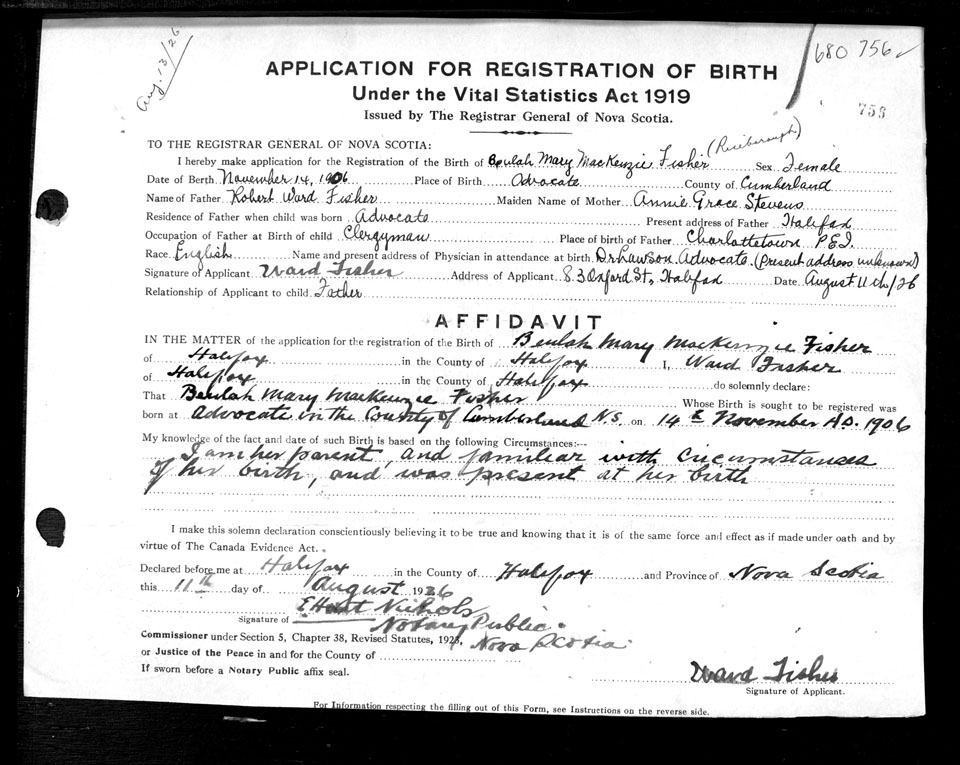 Aug. 13/26
680 756
756
APPLICATION FOR REGISTRATION OF BIRTH
Under the Vital Statistics Act 1919
Issued by The Registrar General of Nova Scotia.
TO THE REGISTRAR GENERAL OF NOVA SCOTIA:
I hereby make application for the Registration of the Birth of Beulah Mary MacKenzie Fisher Sex Female
Date of Berth November 14, 1906 Place of Birth Advocate County of Cumberland
Name of Father Robert Ward Fisher Maiden Name of Mother Annie Grace Stevens
Residence of Father when child was born Advocate Present address of Father Halifax
Occupation of Father at Birth of child Clergyman Place of birth of Father Charlottetown P.E.I.
Race English Name and present address of Physician in attendance at birth Dr Lawson Advocate (Present address unknown)
Signature of Applicant Ward Fisher Address of Applicant 83 Oxford St, Halifax Date August 11th/26
Relationship of Applicant to child Father
AFFIDAVIT
IN THE MATTER of the application for the registration of the Birth of Beulah Mary MacKenzie Fisher
of Halifax in the County of Halifax I, Ward Fisher
of Halifax in the County of Halifax do solemnly declare:
That Beulah Mary MacKenzie Fisher Whose Birth is sought to be registered was
born at Advocate in the County of Cumberland N.S. on 14th November A.D. 1906
My knowledge of the fact and date of such Birth is based on the following Circumstances:--
I am her parent, and familiar with circumstances
of her birth, and was present at her birth
I make this solemn declaration conscientiously believing it to be true and knowing that it is of the same force and effect as if made under oath and by
virtue of The Canada Evidence Act.
Declared before me at Halifax in the County of Halifax and Province of Nova Scotia
this 11th day of August 1926
Nichols
Signature of Notary Public.
Commissioner under Section 5, Chapter 38, Revised Statutes, 1923, Nova Scotia
or Justice of the Peace in and for the County of
If sworn before a Notary Public affix seal.
Ward Fisher
Signature of Applicant.
For Information respecting the filling out of this Form, see Instructions on the reverse side.